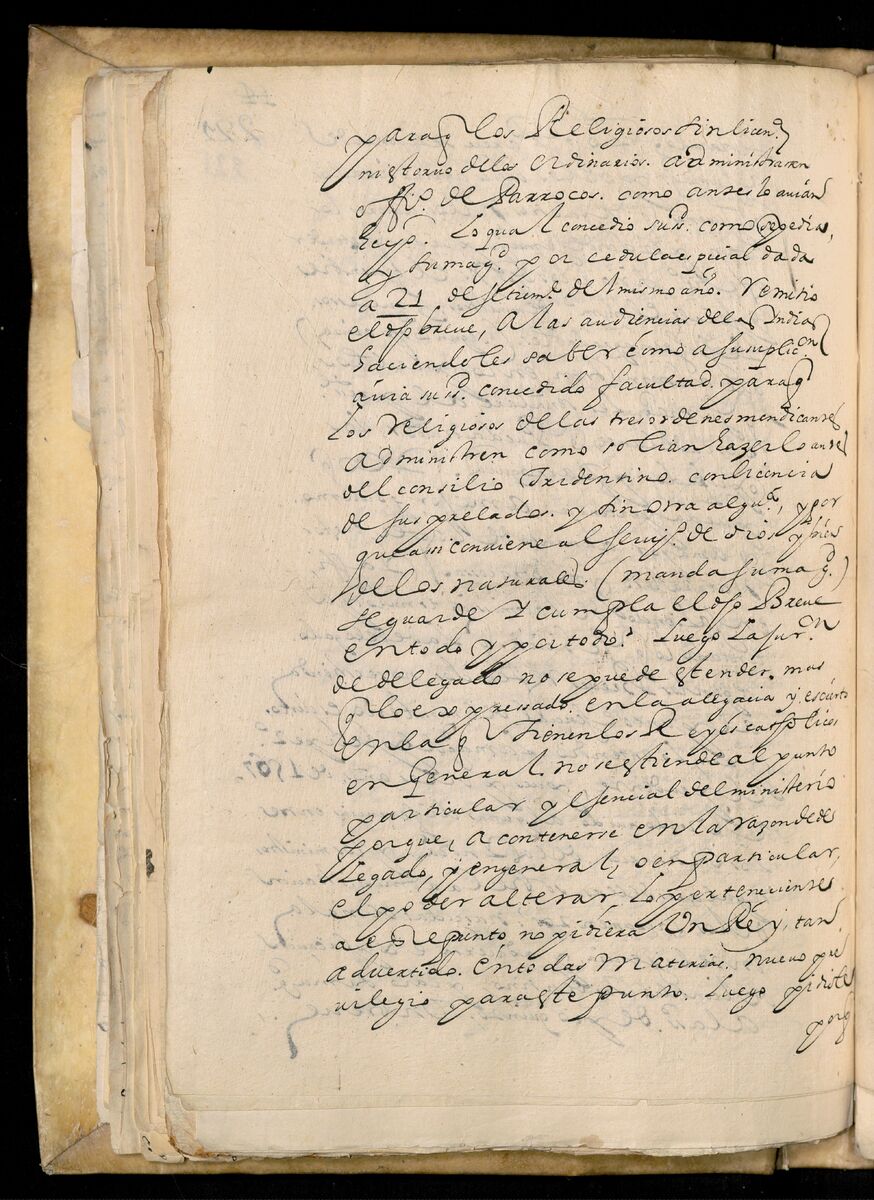 paraq̃ los Religiosos sin licenª
ni estorvo de los ordinarios. administraran
offiº. de Parrocos. como antes lo avian
hecho. lo qual concedio su sd. como se pedia,
y su magd. por cedula especial dada
a 21 de setiemᵉ. del mismo año. remitio
el dho breve, a las audiencias de las Indias
haciendoles saber como a su suplicon
avia su sd. concedido facultad. paraq̃
los religiosos de las tres ordenes mendicantes
administren como solian hazerlo antes
del consilio Tridentino. con licencia
de sus prelados. y sin otra algunª, y por
que assi conviene al serviº. de dios y bien
de los naturales. (manda su magd.)
se guarde y cumpla el dho Breve
en todo y por todo. Luego la jurⁿ
de delegado no se puede estender. mas
q̃ lo expressado. en la alegacia y
en la q̃ tienen los Reyes catholicos
en General. no se estiende al punto
particular y essencial del ministerio
porque, a contenerse en la razon de de
legado, y en general, o en particular,
el poder alterar, lo perteneciente
a este punto no pidiera Un Rey, tan
advertido. en todas Materias. nuevo pre
vilegio para este punto. Luego pidiole
porq̃